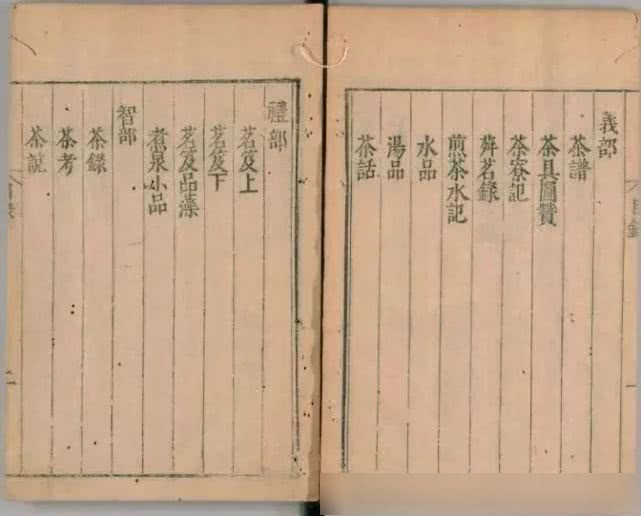 義部
茶譜
茶具圖贊
茶寮記
荈茗錄
煎茶水記
水品
湯品
茶話
禮部
茗笈上
茗笈下
茗笈品藻
煮泉小品
智部
茶錄
茶考
茶說